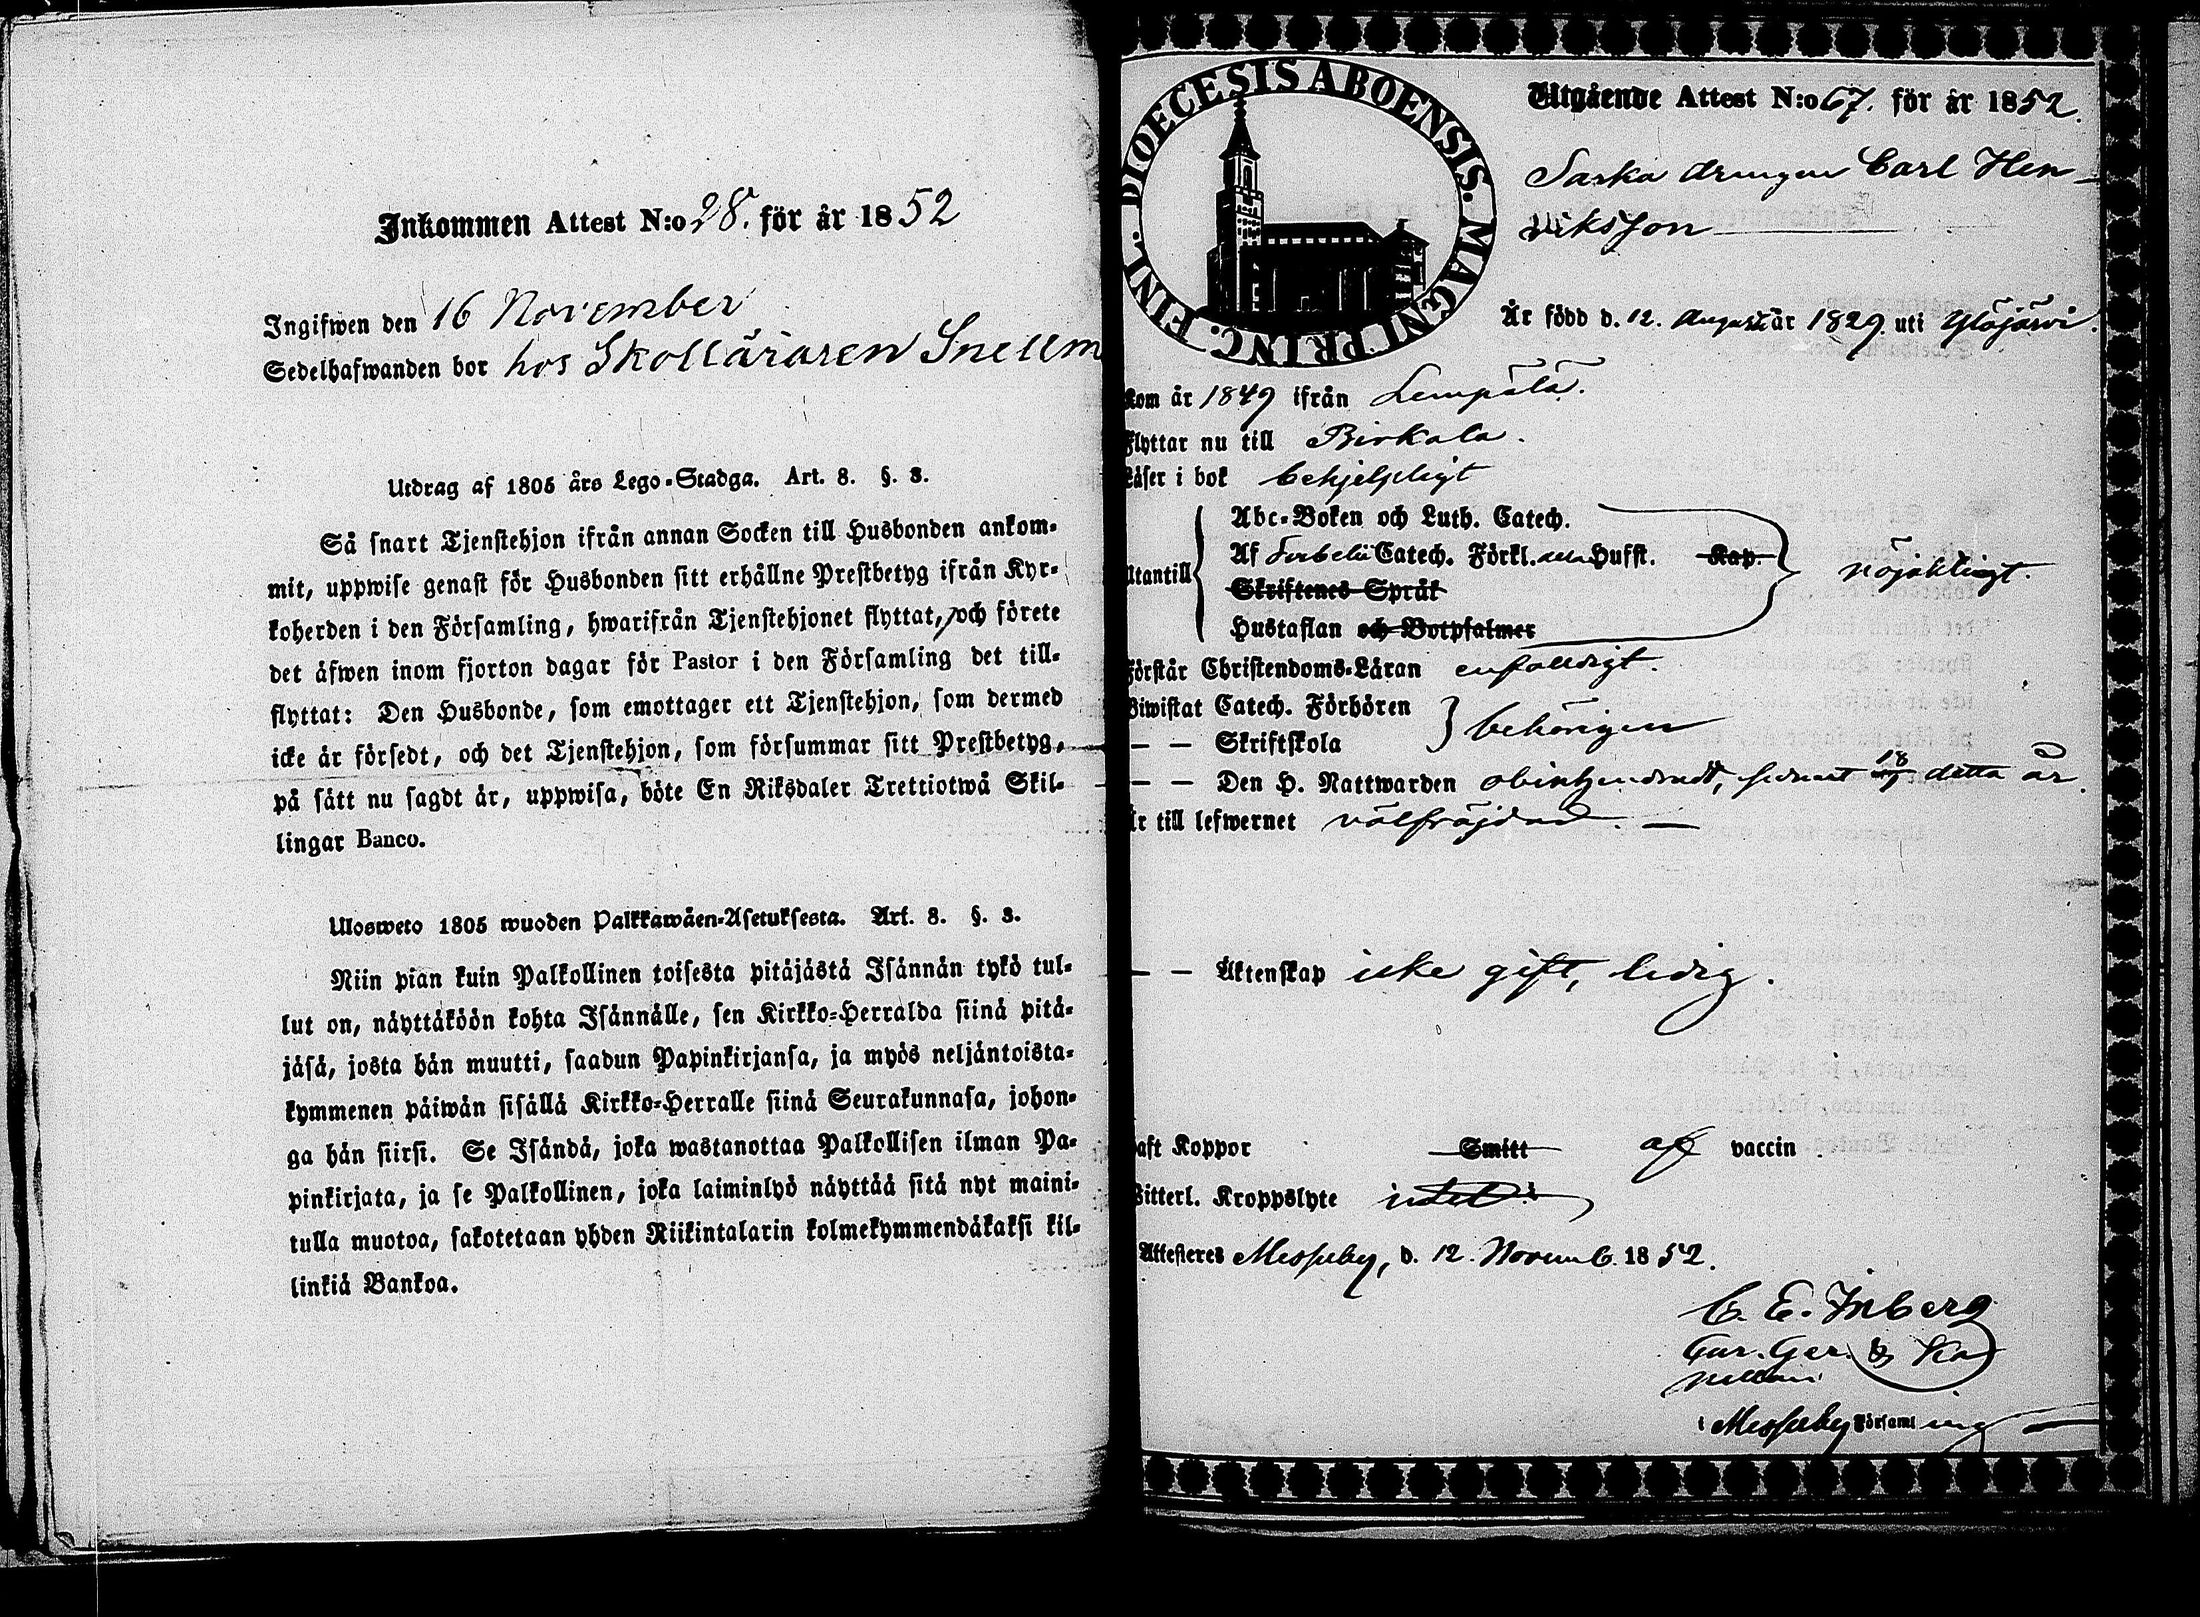 Inkommen Attest N:o 28. för år 1852
Ingifwen den 16 November
Sedelhafwanden bor hos Skolläraren Snellm
Utdrag af 1805 års Lego-Stadga. Art. 8. §. 3.
Så snart Tjenstehjon ifrån annan Socken till Husbonden ankom-
mit, uppwise genast för Husbonden sitt erhållne Prestbetyg ifrån Kyr-
koherden i den Församling, hwarifrån Tjenstehjonet flyttat, och förete
det äfwen inom fjorton dagar för Pastor i den Församling det till-
flyttat: Den Husbonde, som emottager ett Tjenstehjon, som dermed
icke är försedt, och det Tjenstehjon, som försummar sitt Prestbetyg,
på sätt nu sagdt är, uppwisa, böte En Riksdaler Trettiotwå Skil-
lingar Banco.
Ulosweto 1805 wuoden Palkkawäen-Asetuksesta. Art. 8. §. 3.
Niin pian kuin Palkollinen toisesta pitäjästä Isännän tykö tul-
lut on, näyttäköön kohta Isännälle, sen Kirkko-Herralda siinä pitä-
jäsä, josta hän muutti, saadun Papinkirjansa, ja myös neljäntoista-
kymmenen päiwän sisällä Kirkko-Herralle siinä Seurakunnasa, johon-
ga hän siirsi. Se Isändä, joka wastanottaa Palkollisen ilman Pa-
pinkirjata, ja se Palkollinen, joka laiminlyö näyttää sitä nyt maini-
tulla muotoa, sakotetaan yhden Riikintalarin kolmekymmendäkaksi kil-
linkiä Bankoa.
FINL. DIOECESIS ABOENSIS. MAGNI PRINC.
Utgående Attest N:o 67. för år 1852.
Saska drengen Carl Hen-
riksson
Är född d. 12. Augusti år 1829. uti Ylöjärvi.
Kom år 1849 ifrån Lempälä.
Flyttar nu till Birkala.
Läser i bok behjelpligt
Abc-Boken och Luth. Catech.
Utantill Af Catech. Förkl. Hufst. Kap. nöjaktligt.
Skriftenes Språk
Hustaflan och Botpsalmer
Förstår Christendoms-Läran enfalldigt.
Biwistat Catech. Förhören
behörigen
— — Skriftskola
— — Den H. Nattwarden obintzendradt, senast 18 detta år.
Är till lefwernet välfräjdad. —
— — Äktenskap icke gift, ledig.
aft Koppor Smitt af vaccin.
Witterl. Kroppslyte intet
Attesteres Messuby, d. 12. Novemb. 1852.
C. E. Inberg
i Messuby församling